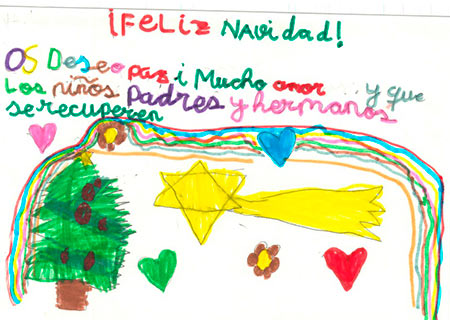 ¡FELIZ NAVIDAD!
OS Deseo paz i Mucho amor y que
Los niños Padres y hermanos
se recuperen